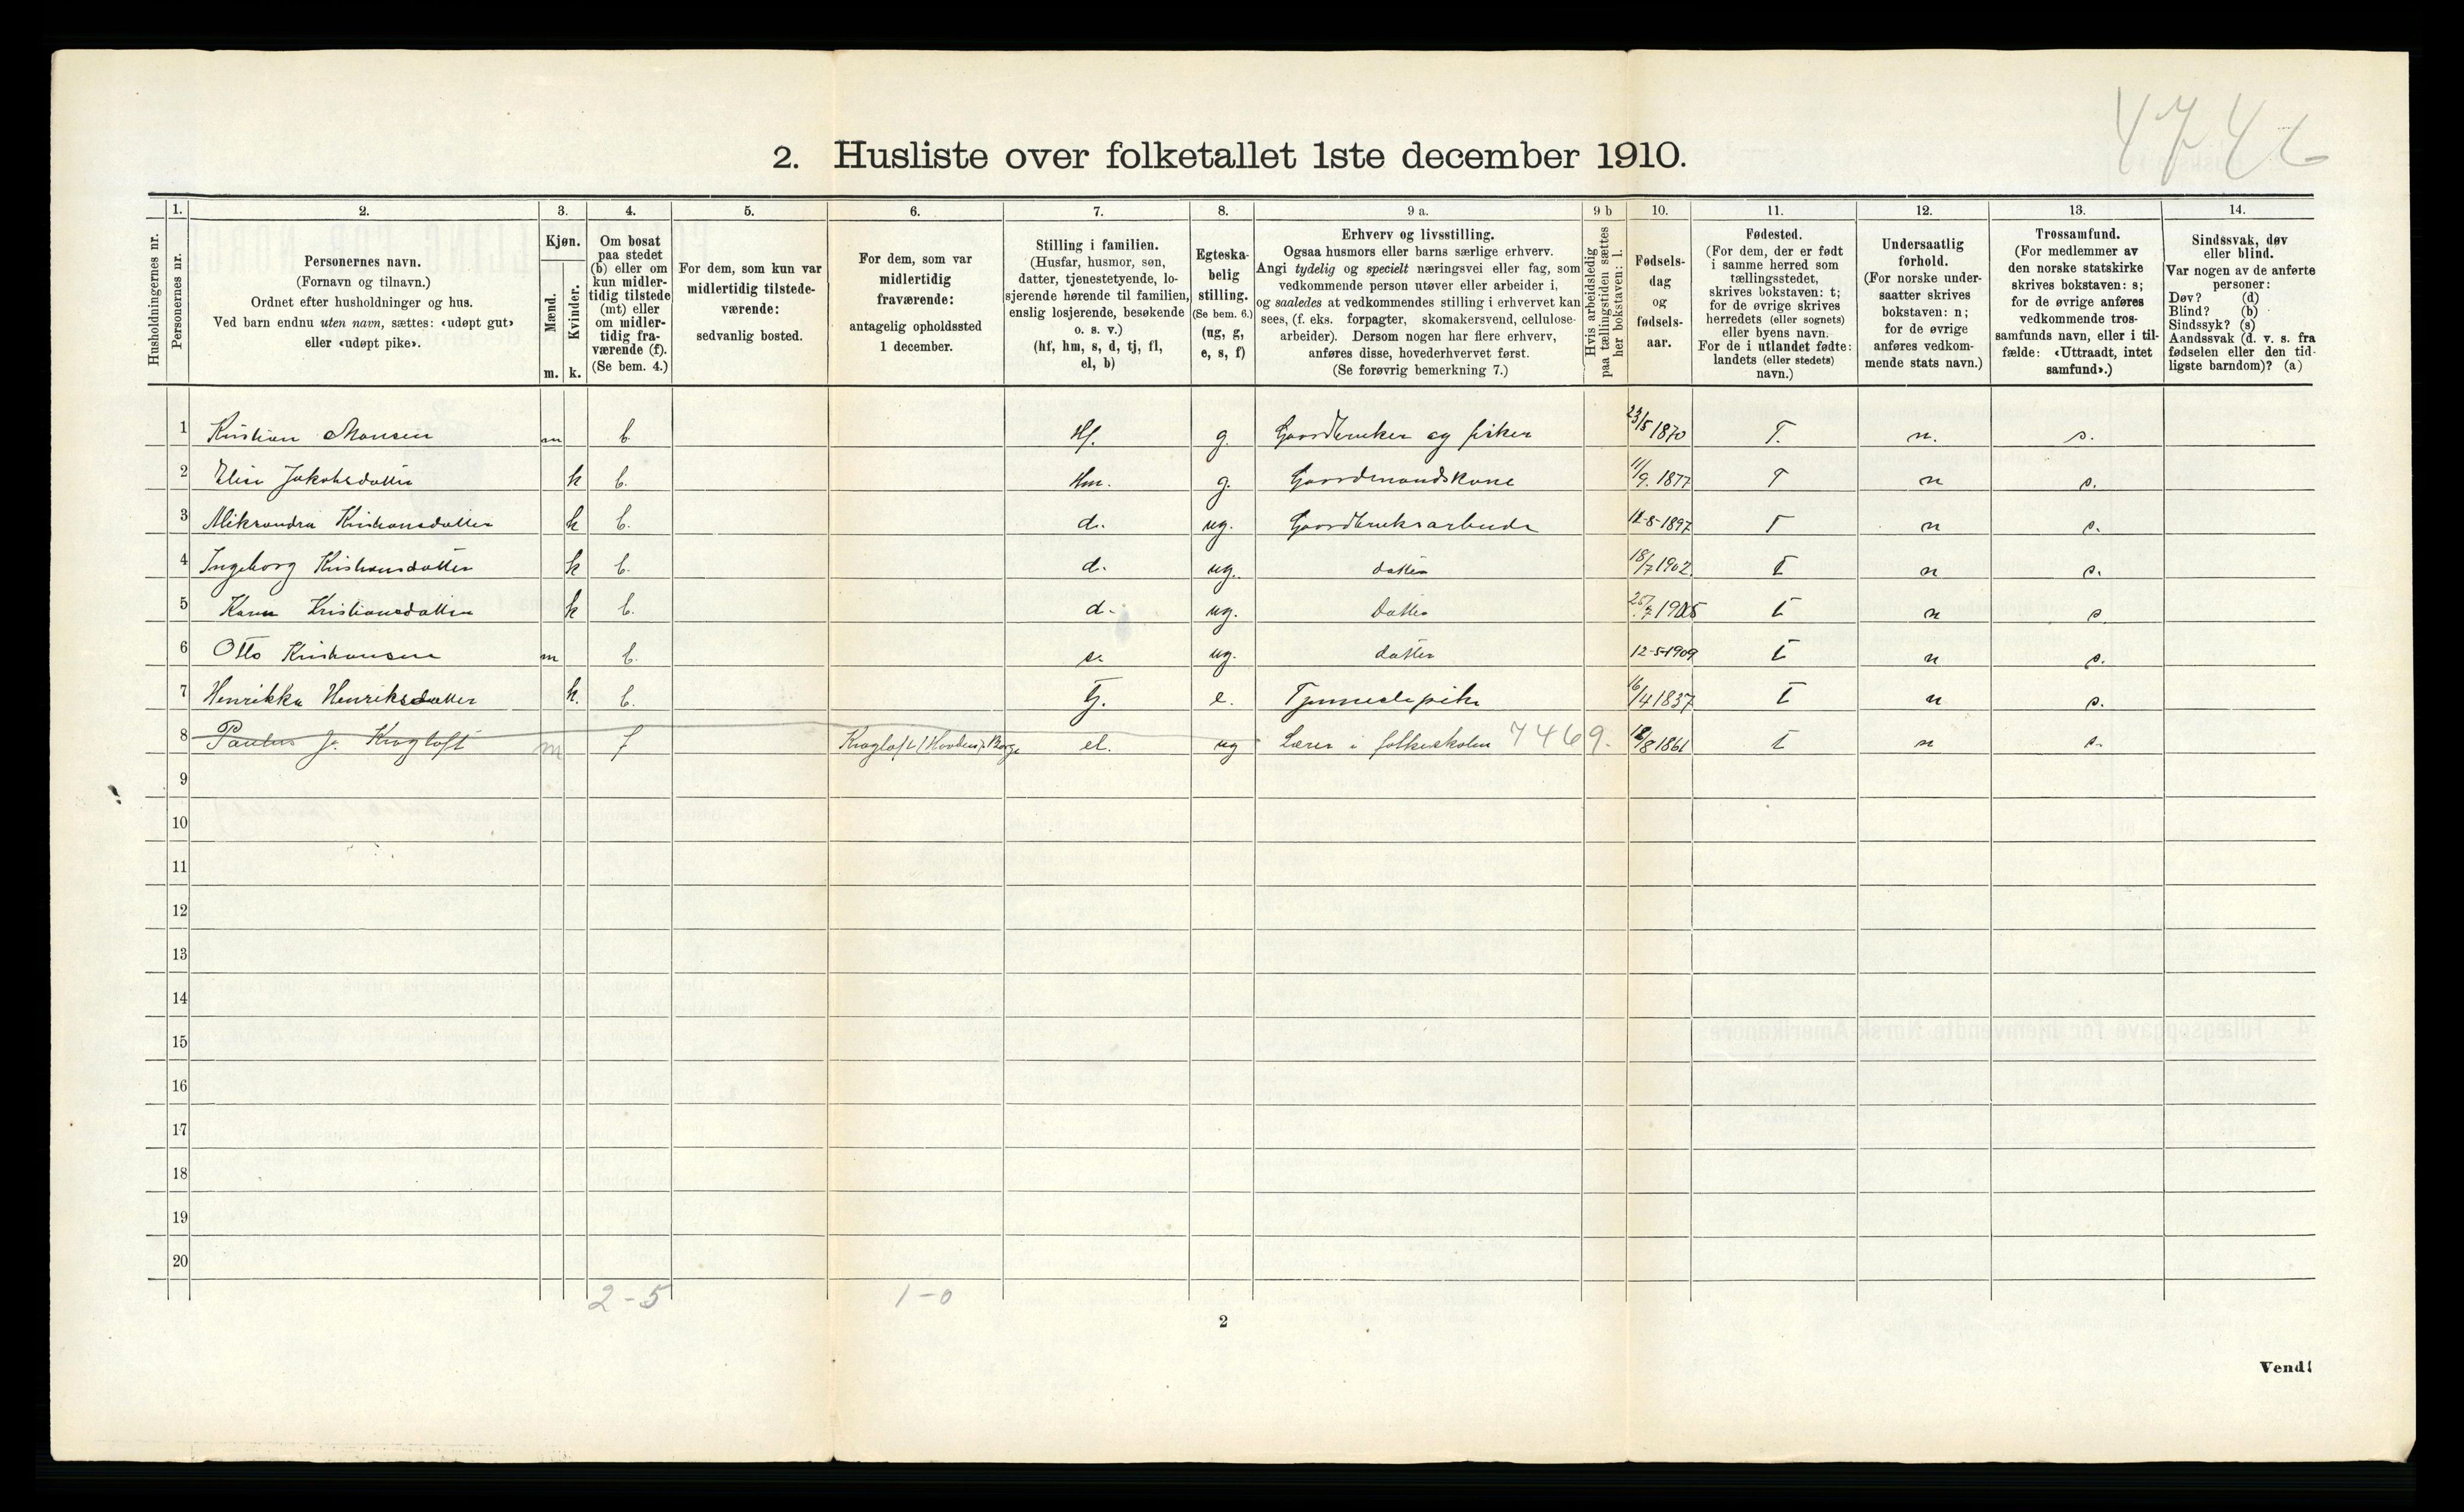 4742
2. Husliste over folketallet 1ste december 1910.
1. 2. 3. 4. 5. 6. 7. 8. 9 a. 9 b 10. 11. 12. 13. 14.
Husholdningernes nr.
Personernes nr.
Personernes navn.
(Fornavn og tilnavn.)
Ordnet efter husholdninger og hus.
Ved barn endnu uten navn, sættes: «udøpt gut»
eller «udøpt pike».
Kjøn.
Mænd.
Kvinder.
m. k.
Om bosat
paa stedet
(b) eller om
kun midler-
tidig tilstede
(mt) eller
om midler-
tidig fra-
værende (f).
(Se bem. 4.)
For dem, som kun var
midlertidig tilstede-
værende:
sedvanlig bosted.
For dem, som var
midlertidig
fraværende:
antagelig opholdssted
1 december.
Stilling i familien.
(Husfar, husmor, søn,
datter, tjenestetyende, lo-
sjerende hørende til familien,
enslig losjerende, besøkende
o. s. v.)
(hf, hm, s, d, tj, fl,
el, b)
Egteska-
belig
stilling.
(Se bem. 6.)
(ug, g,
e, s, f)
Erhverv og livsstilling.
Ogsaa husmors eller barns særlige erhverv.
Angi tydelig og specielt næringsvei eller fag, som
vedkommende person utøver eller arbeider i,
og saaledes at vedkommendes stilling i erhvervet kan
sees, (f. eks. forpagter, skomakersvend, cellulose-
arbeider). Dersom nogen har flere erhverv,
anføres disse, hovederhvervet først.
(Se forøvrig bemerkning 7.)
Hvis arbeidsledig
paa tællingstiden sættes
her bokstaven: l.
Fødsels-
dag
og
fødsels-
aar.
Fødested.
(For dem, der er født
i samme herred som
tællingsstedet,
skrives bokstaven: t;
for de øvrige skrives
herredets (eller sognets)
eller byens navn.
For de i utlandet fødte:
landets (eller stedets)
navn.)
Undersaatlig
forhold.
(For norske under-
saatter skrives
bokstaven: n;
for de øvrige
anføres vedkom-
mende stats navn.)
Trossamfund.
(For medlemmer av
den norske statskirke
skrives bokstaven: s;
for de øvrige anføres
vedkommende tros-
samfunds navn, eller i til-
fælde: «Uttraadt, intet
samfund».)
Sindssvak, døv
eller blind.
Var nogen av de anførte
personer:
Døv? (d)
Blind? (b)
Sindssyk? (s)
Aandssvak (d. v. s. fra
fødselen eller den tid-
ligste barndom)? (a)
1 Kristian Monsen m b. Hf. g. Gaardbruker og fisker 23/5 1870 T. n. s.
2 Elise Jakobsdatter k b. Hm. g. Gaardmandskone 11/9. 1877 T n s.
3 Aleksandra Kristiansdatter k b. d. ug. Gaardbruksarbeide 12-8-1897 T n s.
4 Ingeborg Kristiansdatter k b. d. ug. datter 18/7 1902. t n s.
5 Karen Kristiansdatter k b. d. ug. Datter 25/7 1905 t n s.
6 Otto Kristiansen m b. s. ug. datter 12-5-1909 t n s.
7 Henrikka Henriksdatter k. b. Tj. e. Tjenestepike 16/4 1837 t n s.
8 Paulus J. Kragtoft m f Kragtoft (Hovden) i Borge el. ug Lærer i folkeskolen 7469. 18/8 1861 t n s.
9
10
11
12
13
14
15
16
17
18
19
20
2-5 1-0
2
Vend!